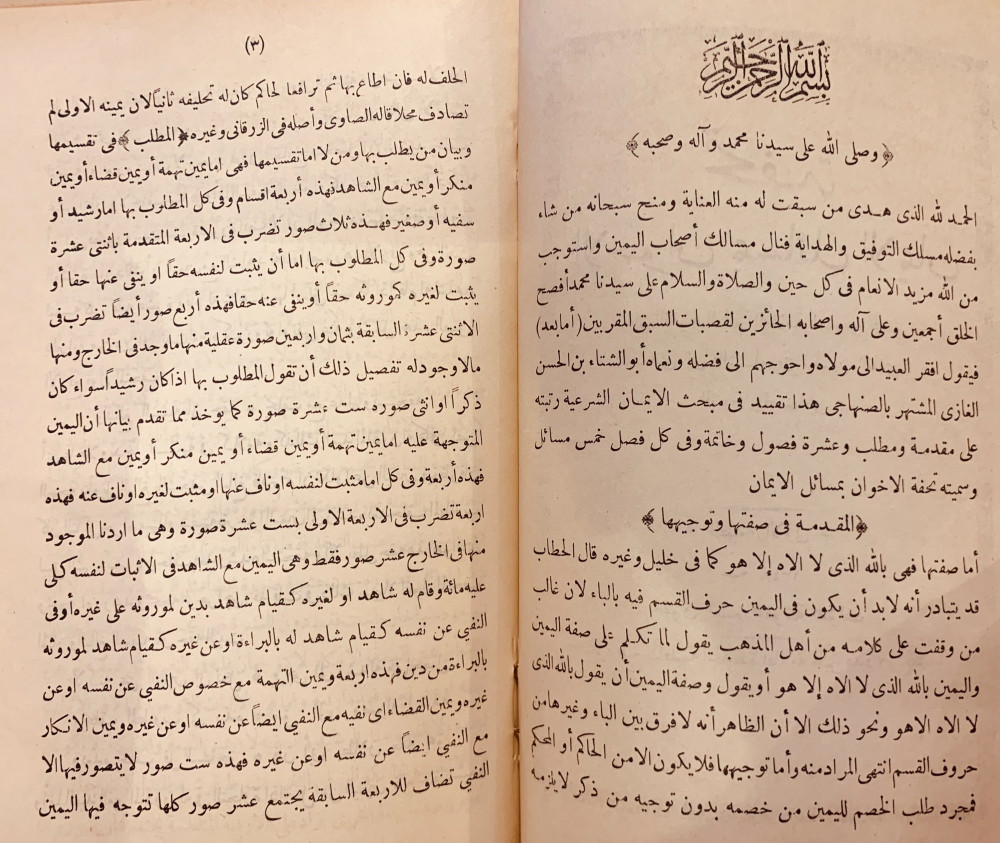 بسم الله الرحمن الرحيم
﴿ وصلى الله على سيدنا محمد وآله وصحبه ﴾
الحمد لله الذى هـدى من سبقت له منه العناية ومنح سبحانه من شاء
بفضله مسلك التوفيق والهداية فنال مسالك أصحاب اليمين واستوجب
من الله مزيد الانعام فى كل حين والصلاة والسلام على سيدنا محمد أفصح
الخلق أجمعين وعلى آله واصحابه الحائزين لقصبات السبق المقربين (أما بعد)
فيقول افقر العبيد الى مولاه واحوجهم الى فضله ونعماه أبو الشتاء بن الحسن
الغازى المشتهر بالصنهاجى هذا تقييد فى مبحث الايمـان الشرعية رتبته
على مقدمة ومطلب وعشرة فصول وخاتمة وفى كل فصل خمس مسائل
وسميته تحفة الاخوان بمسائل الايمان
﴿المقدمة فى صفتها وتوجيهها ﴾
أما صفتها فهى بالله الذى لا الاه إلا هو كما فى خليل وغيره قال الحطاب
قد يتبادر أنه لابد أن يكون فى اليمين حرف القسم فيه بالباء لان غالب
من وقفت على كلامه من أهل المذهب يقول لما تكلم على صفة اليمين
واليمين بالله الذى لا الاه إلا هو أو يقول وصفة اليمين أن يقول بالله الذى
لا الاه الاهو ونحو ذلك الا أن الظاهر أنه لا فرق بين الباء وغيرها من
حروف القسم انتهى المراد منه وأما توجيهها فلا يكون الا من الحاكم أو المحكم
فمجرد طلب الخصم لليمين من خصمه بدون توجيه من ذكر لا يلزمه
(٣)
الحلف له فان اطاع بها ثم ترافعا لحاكم كان له تحليفه ثانياً لان يمينه الاولى لم
تصادف محلا قاله الصاوى وأصله فى الزرقانى وغيره ﴿المطلب ﴾ فى تقسيمها
وبيان من يطلب بها ومن لا اما تقسيمها فهى اما يمين تهمة أو يمين قضاء أو يمين
منكر أو يمين مع الشاهد فهذه أربعة اقسام وفى كل المطلوب بها اما رشيد أو
سفيه أو صغير فهـذه ثلاث صور تضرب فى الاربعة المتقدمة باثنتى عشرة
صورة وفى كل المطلوب بها اما أن يثبت لنفسه حقاً او ينفى عنها حقا أو
يثبت لغيره كموروثه حقاً أو ينفى عنه حقا فهذه أربع صور أيضاً تضرب فى
الاثنتى عشرة السابقة بثمان واربعين صورة عقلية منها ما وجد فى الخارج ومنها
مالا وجود له تفصيل ذلك أن تقول المطلوب بها اذا كان رشيداً سواء كان
ذكراً او انثى صوره ست عشرة صورة كما يوخذ مما تقدم بيانها أن اليمين
المتوجهة عليه اما يمين تهمة أو يمين قضاء أو يمين منكر أو يمين مع الشاهد
فهذه أربعة وفى كل اما مثبت لنفسه او ناف عنها او مثبت لغيره او ناف عنه فهذه
اربعة تضرب فى الاربعة الاولى بست عشرة صورة وهى ما اردنا الموجود
منها فى الخارج عشر صور فقط وهى اليمين مع الشاهد فى الاثبات لنفسه كلى
عليه مائة وقام له شاهد او لغيره كقيام شاهد بدين لموروثه على غيره أو فى
النفى عن نفسه كقيام شاهد له بالبراءة او عن غيره كقيام شاهد لموروثه
بالبراءة من دين فهذه اربعة ويمين التهمة مع خصوص النفى عن نفسه او عن
غيره ويمين القضاء اى نفيه مع النفى ايضاً عن نفسه او عن غيره ويمين الانكار
مع النفى ايضاً عن نفسه او عن غيره فهذه ست صور لا يتصور فيها الا
النفى تضاف للاربعة السابقة يجتمع عشر صور كلها تتوجه فيها اليمين